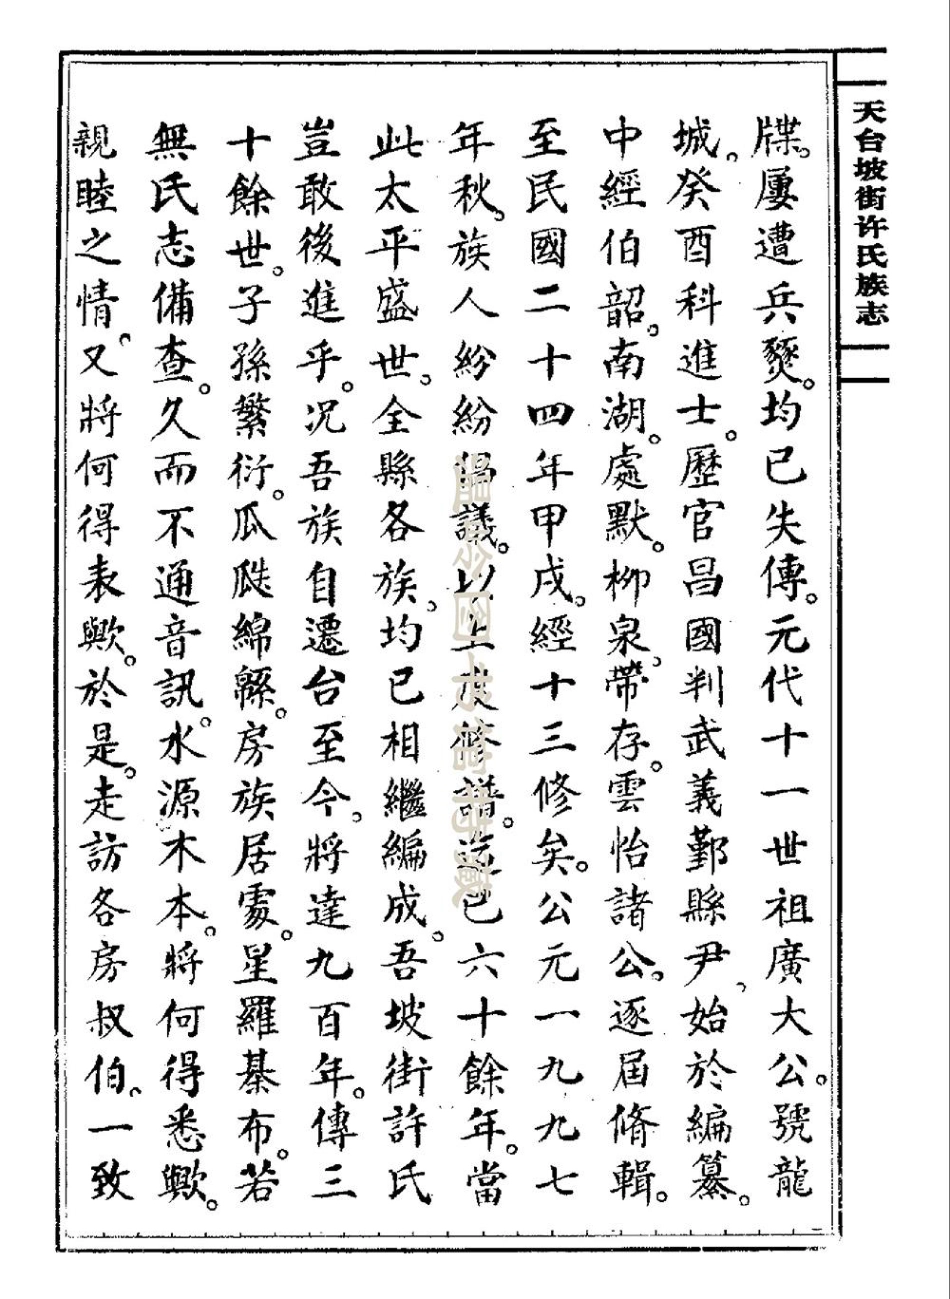 天台坡街许氏族志
牒。屢遭兵燹。均已失傳。元代十一世祖廣大公。號龍
城。癸酉科進士。歷官昌國判武義鄞縣尹、始於編纂。
中經伯韶。南湖。處默。柳泉、帶存。雲怡諸公。逐屆脩輯。
至民國二十四年甲戌。經十三修矣。公元一九九七
年秋。族人紛紛倡議。以上度修譜。迄已六十餘年。當
此太平盛世。全縣各族、均已相繼編成。吾坡街許氏
豈敢後進乎。况吾族自遷台至今。將達九百年。傳三
十餘世。子孫繁衍。瓜瓞綿緜。房族居處。星羅棊布。若
無氏志備查。久而不通音訊。水源木本。將何得悉歟。
親睦之情。又將何得表歟。於是。走訪各房叔伯。一致